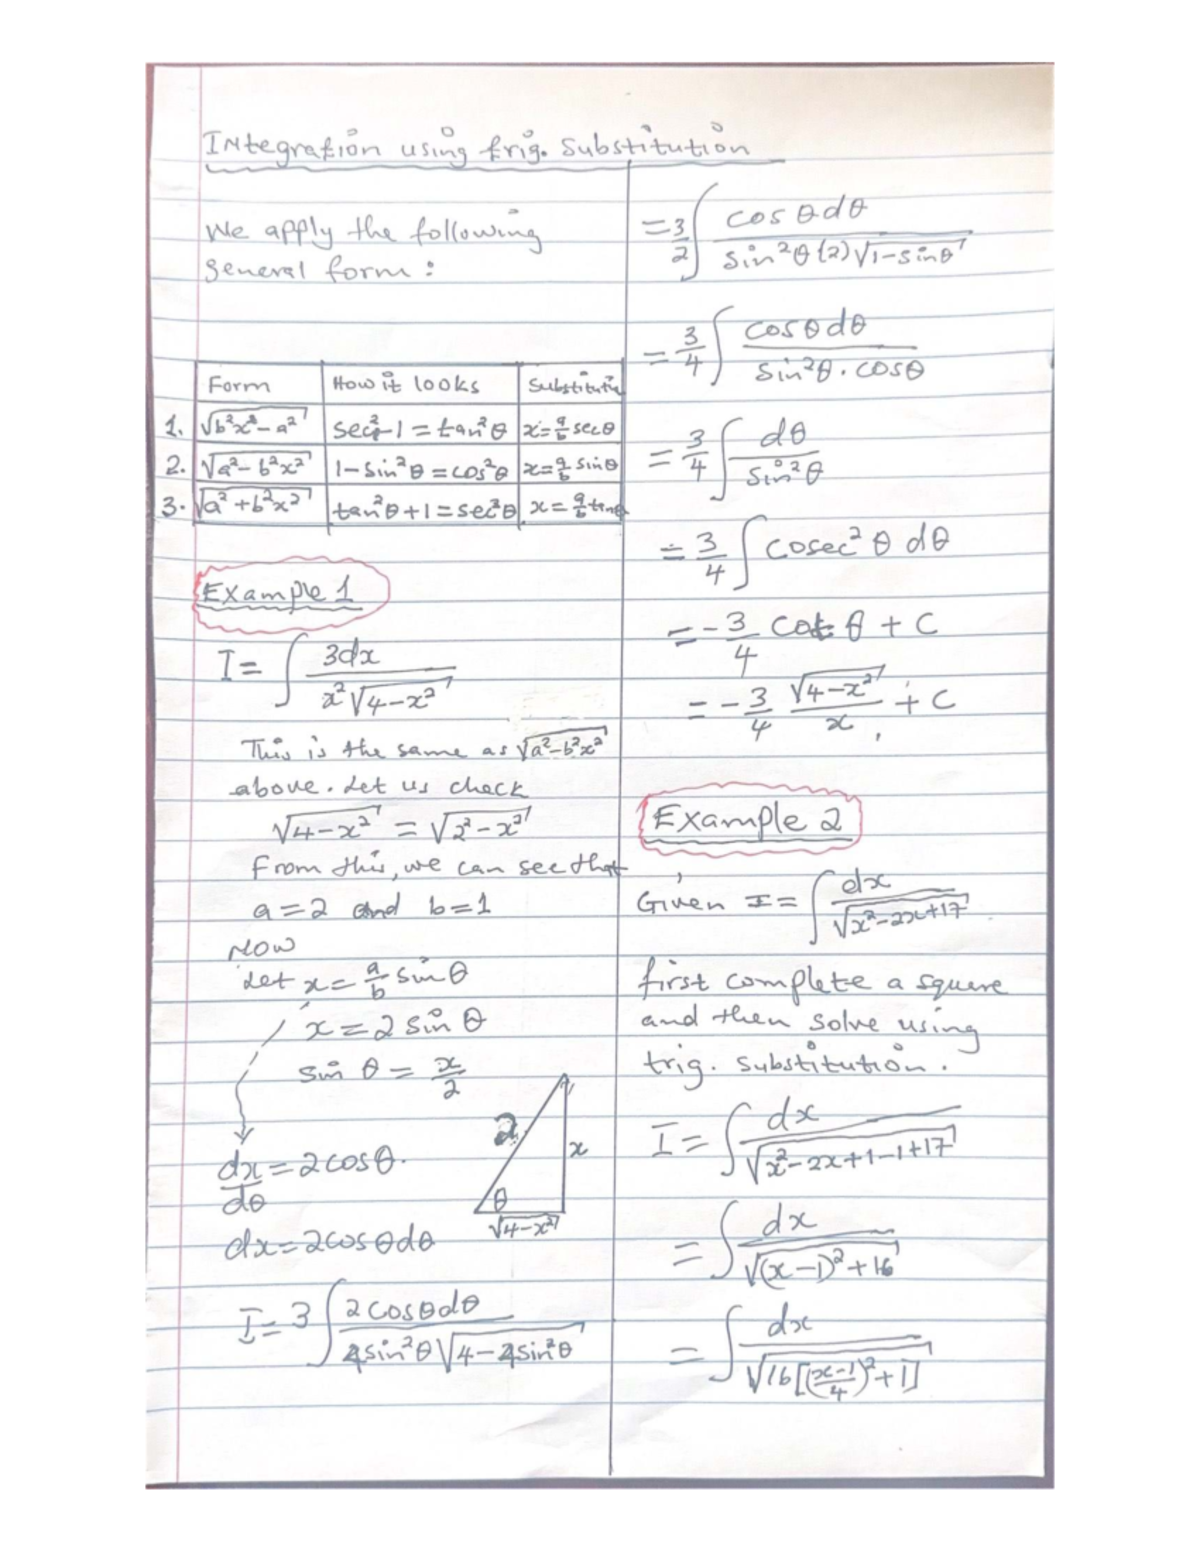 Integration using trig. Substitution
We apply the following
general form:
Form | How it looks | Substitutio
1. √(b²x²-a²) | sec²-1=tan²θ | x=a/b secθ
2. √(a²-b²x²) | 1-sin²θ=cos²θ | x=a/b sinθ
3. √(a²+b²x²) | tan²θ+1=sec²θ | x=a/b tanθ
Example 1
I= ∫ 3dx / x²√(4-x²)
This is the same as √(a²-b²x²)
above. Let us check
√(4-x²) = √(2²-x²)
From this, we can see that
a=2 and b=1
Now
Let x= a/b sin θ
x=2 sin θ
sin θ = x/2
2
x
θ
√(4-x²)
dx/dθ = 2cosθ.
dx=2cosθdθ
I= 3 ∫ 2cosθdθ / 4sin²θ√(4-4sin²θ)
= 3/2 ∫ cosθdθ / sin²θ(2)√(1-sinθ)
= 3/4 ∫ cosθdθ / sin²θ.cosθ
= 3/4 ∫ dθ / sin²θ
= 3/4 ∫ cosec²θ dθ
= -3/4 cot θ + C
= -3/4 √(4-x²)/x + C
Example 2
Given I= ∫ dx / √(x²-2x+17)
first complete a square
and then solve using
trig. substitution.
I= ∫ dx / √(x²-2x+1-1+17)
= ∫ dx / √((x-1)²+16)
= ∫ dx / √(16[((x-1)/4)²+1])